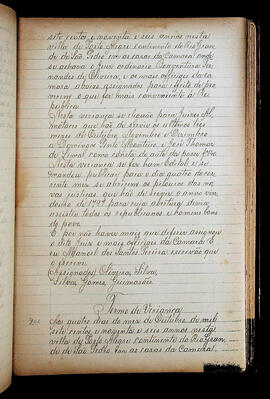 sete centos e noventa e seis annos nesta
villa de Porto Alegre continente do Rio Gran
de de São Pedro em as casas da Camara onde
se achava o Juiz ordinario
nandes de Oliveira, e os mais officiaes da ca
mara abaixo assignados para effeito de pro
verem o que for mais conveniente á Re
publica
Nesta vereança se elegeo para Juizes Al
motaceis que hão de servir os ultimos tres
mezes de Outubro Novembro e Dezembro
a Domingos Leite, e José Thomaz
de Lima como consta do auto de posse
Nesta vereança se fez hum Edital e se
mandou publicar para o dia quatro do cor
rente mez se abrirem os pelouros das no
vas justiças que hão de servir o anno vin
douro de 1797 para cuja abertura devem
assistir todos os republicanos e homens bons
do povo
E por não haver mais que deferir assignou
o dito Juiz e mais officiaes da Camara. E
eu Manoel dos Santos Pereira escrivão que
o escrevi.
(Assignados) Oliveira, Silva,
Silva, Gomes, Guimarães
Termo de Vereança
Aos quatro dias do mez de Outubro de mil
sete centos e noventa e seis annos nesta
villa de Porto Alegre continente do Rio Gran
de de São Pedro em as casas da Camara,